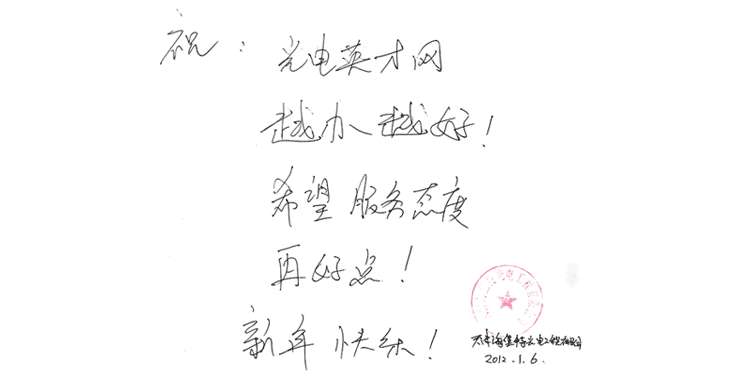 祝：光电英才网
越办越好！
希望服务态度
再好点！
新年快乐！
2012.1.6.